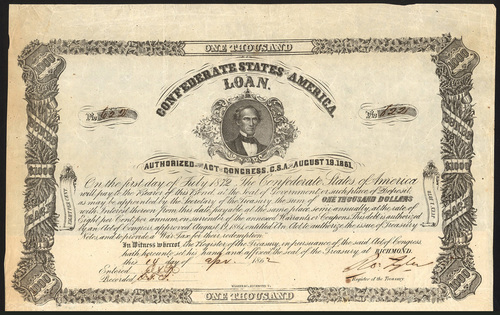 ONE THOUSAND
CONFEDERATE STATES AMERICA.
LOAN.
No 622
No 622
AUTHORIZED ACT CONGRESS, C.S.A. AUGUST 19. 1861.
On the first day of July 1872 The Confederate States of America
will pay to the Bearer of this Bond, at the seat of Government, or such place of Deposit,
as may be appointed by the Secretary of the Treasury, the sum of ONE THOUSAND DOLLARS
with Interest thereon from this date payable at the same place semi annually, at the rate of
Eight per Cent per annum, on surrender of the annexed Warrants or Coupons. This debt is authorized
by an Act of Congress approved August 19. 1861, entitled An Act to authorize the issue of Treasury
Notes, and to provide a War Tax for their redemption.
In Witness whereof, the Register of the Treasury, in pursuance of the said Act of Congress,
hath hereunto set his hand and affixed the seal of the Treasury at RICHMOND.
this day of Apr. 1862
Entered
Recorded
Register of the Treasury
ONE THOUSAND
1000
1000
$1000
$1000
1000
1000